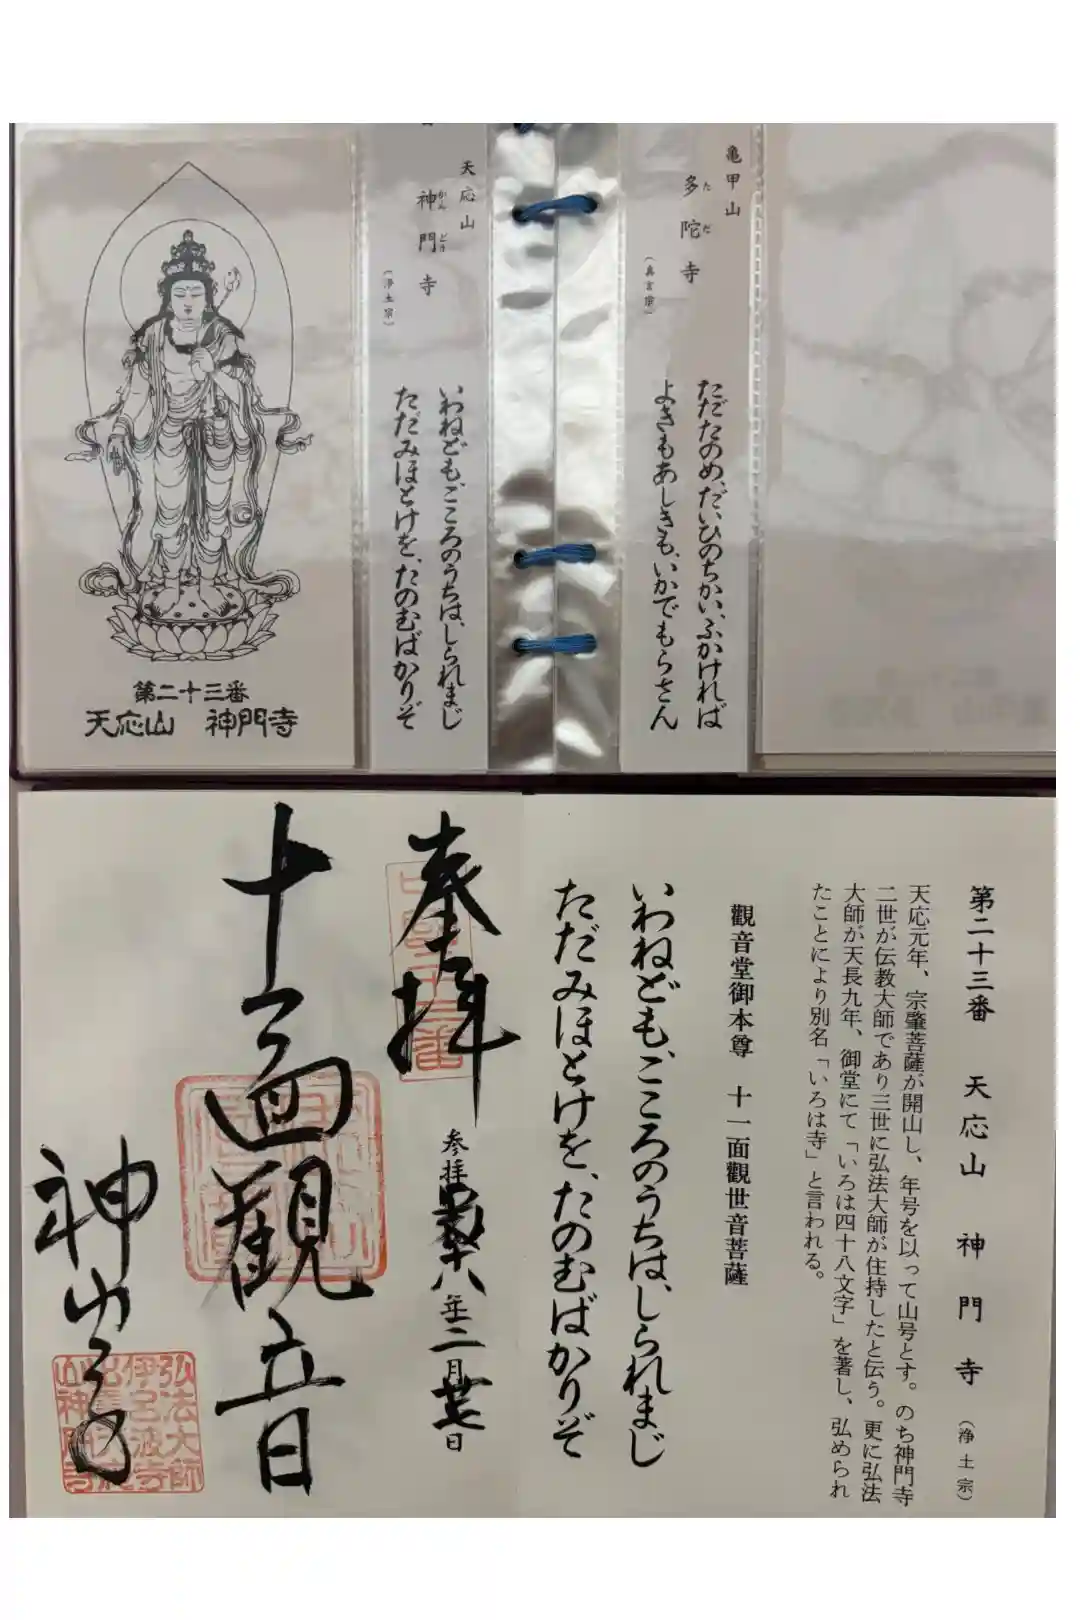 亀甲山
多陀寺
ただ
(真言宗)
ただたのめ、だいひのちかい、ふかければ
よきもあしきも、いかでもらさん
天応山
神門寺
かんどう
(浄土宗)
いわねども、こころのうちは、しられまじ
ただみほとけを、たのむばかりぞ
第二十三番
天応山 神門寺
第二十三番 天応山 神門寺 (浄土宗)
天応元年、宗肇菩薩が開山し、年号を以って山号とす。のち神門寺
二世が伝教大師であり三世に弘法大師が住持したと伝う。更に弘法
大師が天長九年、御堂にて「いろは四十八文字」を著し、弘められ
たことにより別名「いろは寺」と言われる。
觀音堂御本尊 十一面觀世音菩薩
いわねども、こころのうちは、しられまじ
ただみほとけを、たのむばかりぞ
奉拝
参拝
八年二月廿七日
十一面觀音
神門寺
弘法大師
伊呂波寺
山神門寺